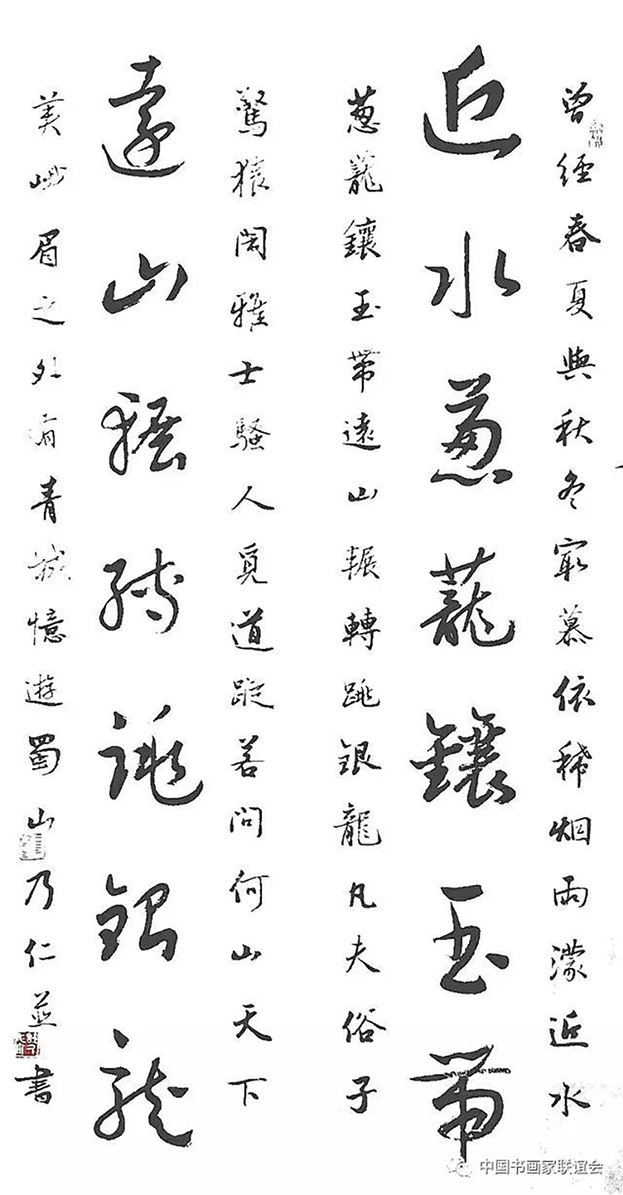 曾經春夏與秋冬窮慕依稀烟雨濛近水
近水蔥蘢鑲玉帶
蔥蘢鑲玉帶遠山輾轉跳銀龍凡夫俗子
驚猿闊雅士騷人覓道蹤若問何山天下
遠山輾轉跳銀龍
美峨眉之外有青城憶遊蜀山乃仁並書
中国书画家联谊会